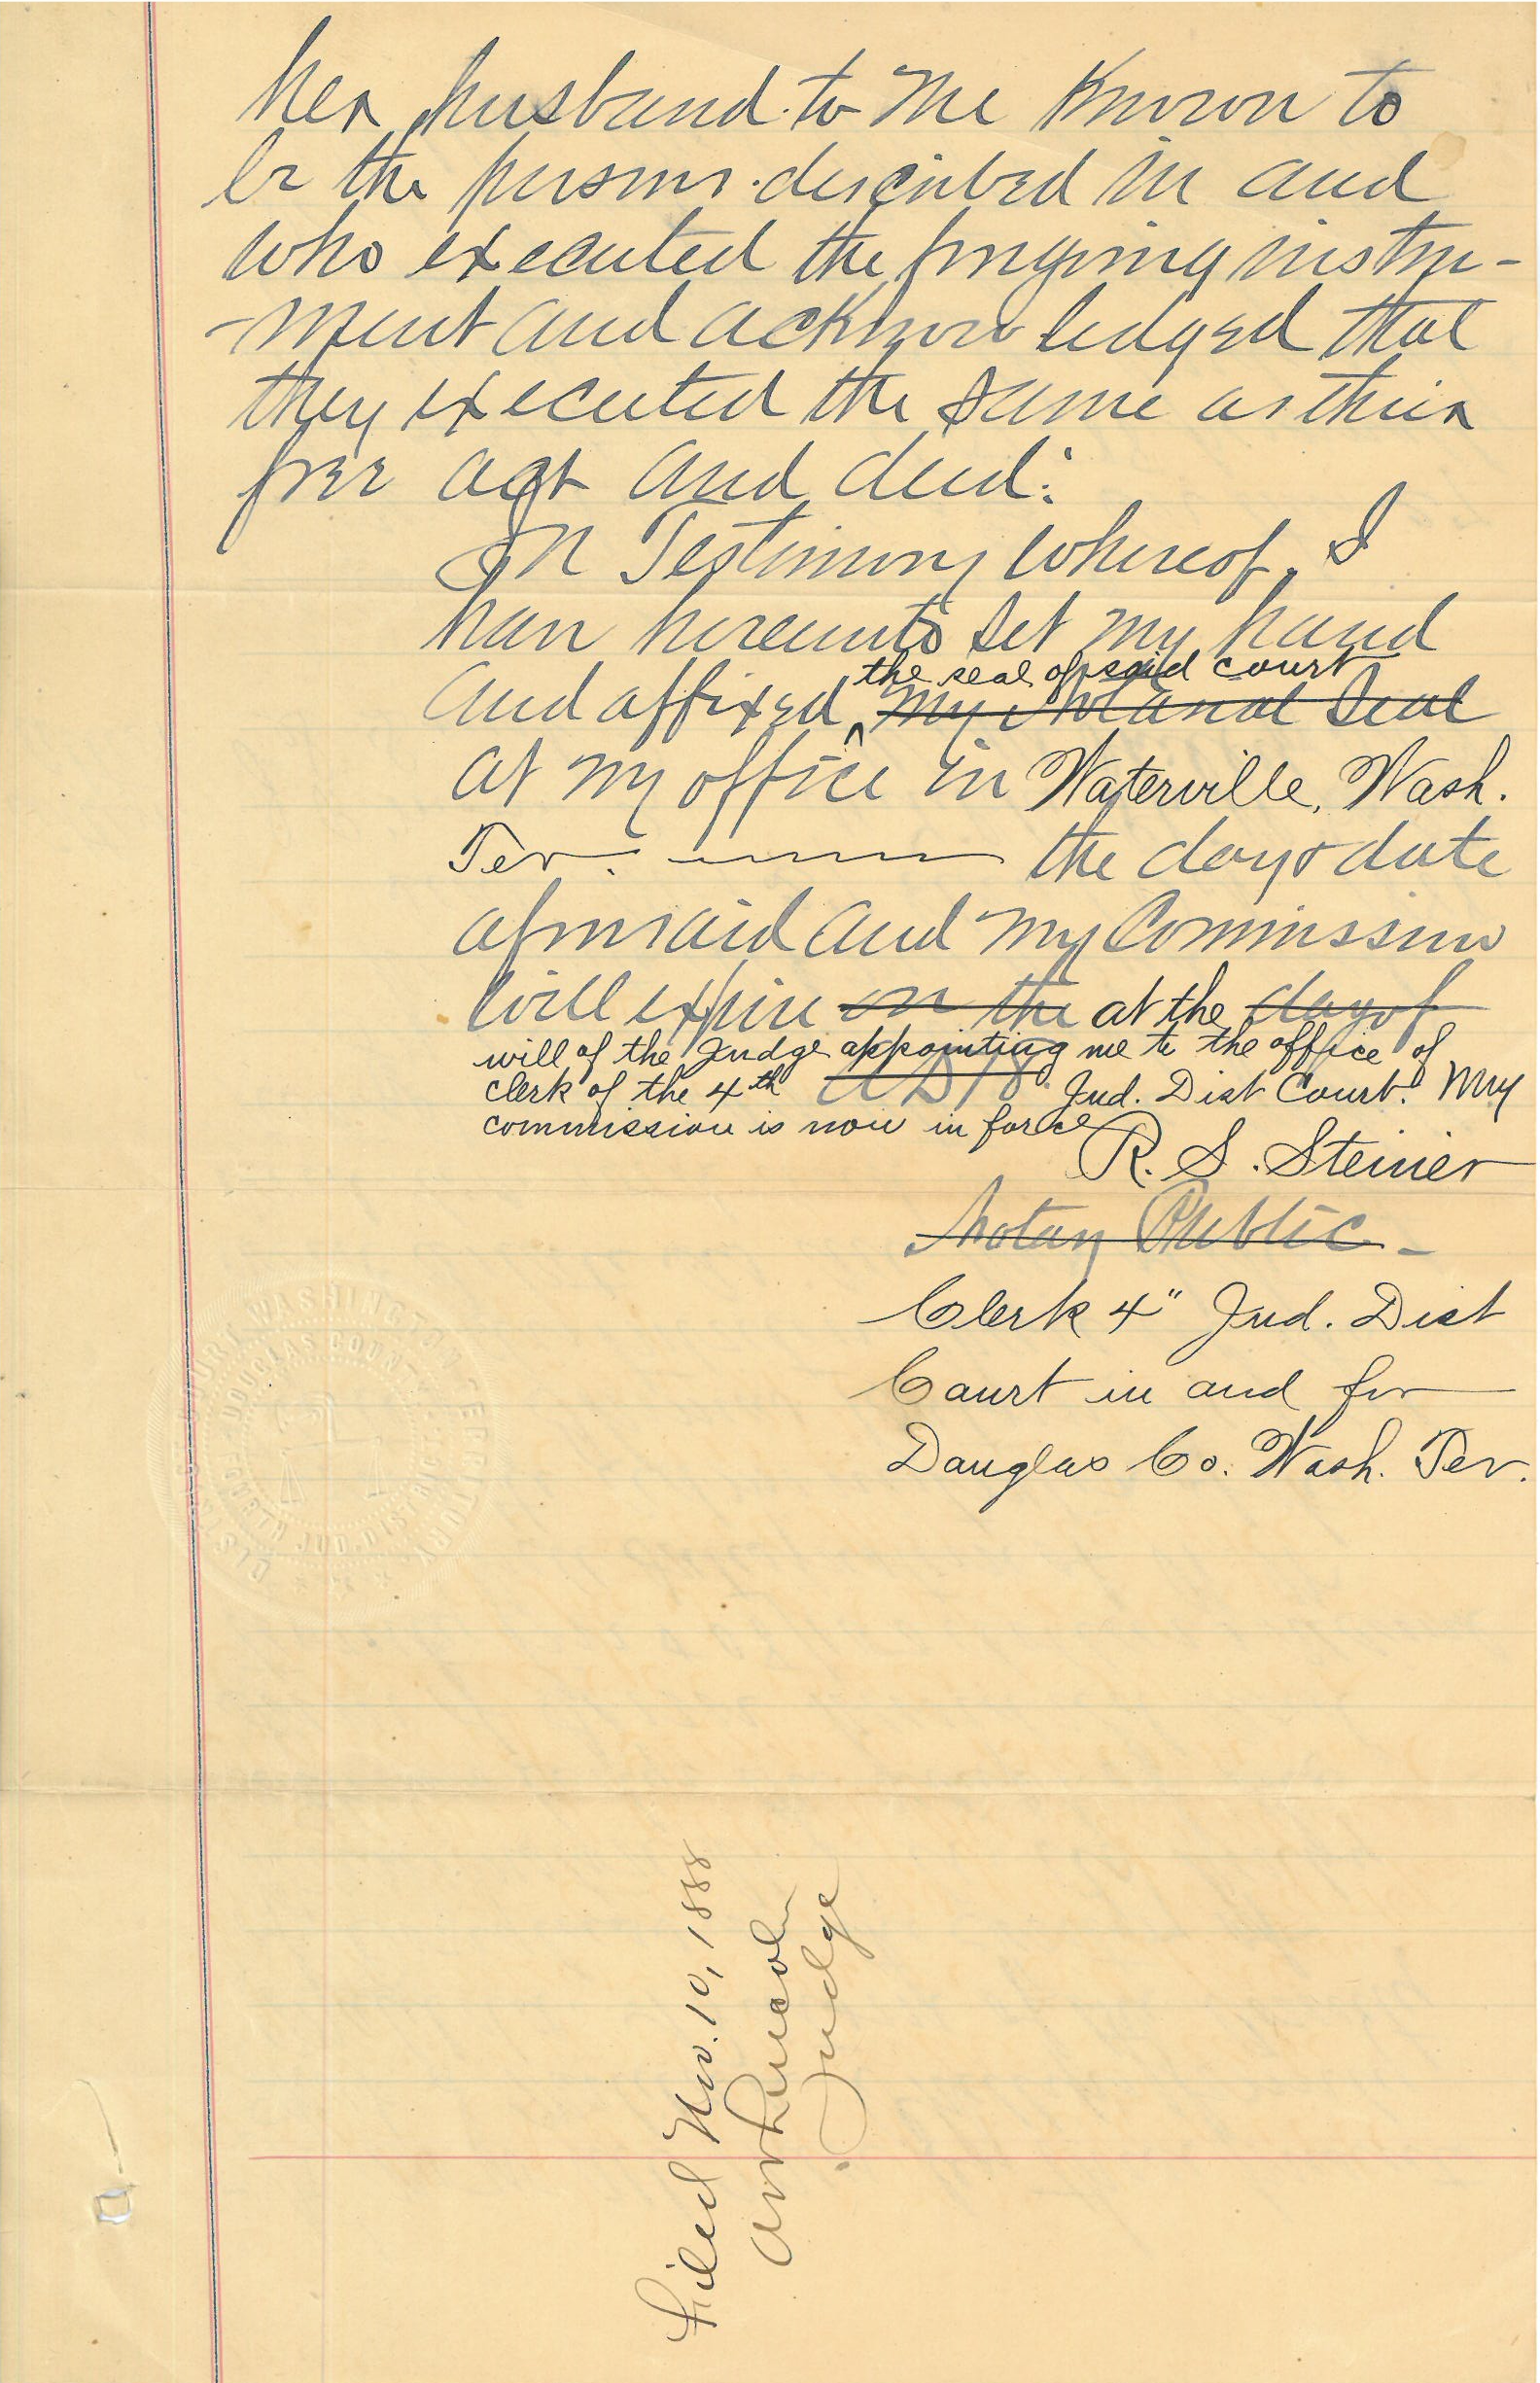 her husband to me Known to
be the persons described in and
who executed the foregoing instru-
-ment and acknowledged that
they executed the same as their
free act and deed:
In Testimony Whereof, I
have hereunto set my hand
the seal of said court
and affixed ^ my Notarial Seal
at my office in Waterville, Wash.
Ter. the day & date
aforesaid and my Commission
will expire on the at the day of
will of the Judge appointing me to the office of
clerk of the 4th AD 18 Jud. Dist Court. My
commission is now in force
R. S. Steiner
Notary Public -
Clerk 4" Jud. Dist
Court in and for
Douglas Co. Wash. Ter.
DISTRICT COURT WASHINGTON TERRITORY
DOUGLAS COUNTY
FOURTH JUD. DIST.
Filed Nov. 10, 1888
Lincoln
Judge